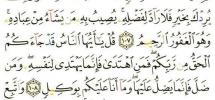 يُرِدْكَ بِخَيْرٍ فَلَا رَآدَّ لِفَضْلِهِۦ يُصِيبُ بِهِۦ مَن يَشَآءُ مِنْ عِبَادِهِۦ
وَهُوَ ٱلْغَفُورُ ٱلرَّحِيمُ ١٠٧ قُلْ يَٰٓأَيُّهَا ٱلنَّاسُ قَدْ جَآءَكُمُ
ٱلْحَقُّ مِن رَّبِّكُمْ فَمَنِ ٱهْتَدَىٰ فَإِنَّمَا يَهْتَدِى لِنَفْسِهِۦ وَمَن
ضَلَّ فَإِنَّمَا يَضِلُّ عَلَيْهَا وَمَآ أَنَا۠ عَلَيْكُم بِوَكِيلٍ ١٠٨ وَٱتَّبِعْ